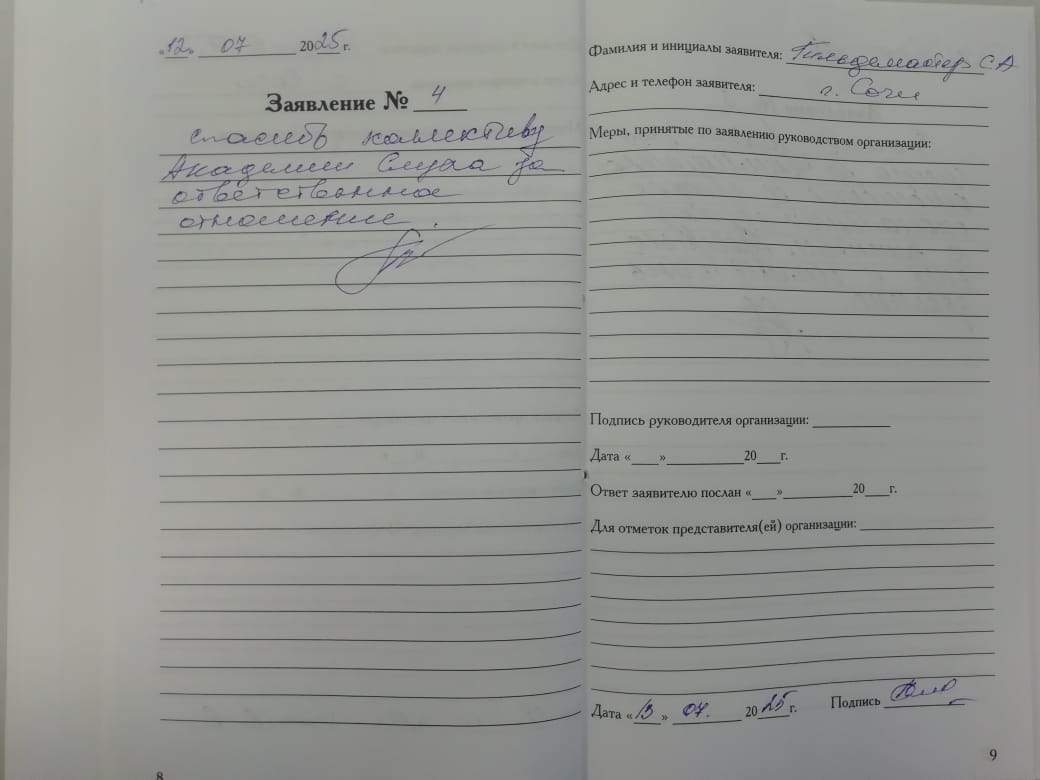 «12» 07 2025 г.
Заявление № 4
спасибо коллективу
Академии Слуха за
ответственное
отношение.
8
Фамилия и инициалы заявителя: С А
Адрес и телефон заявителя: г. Сочи
Меры, принятые по заявлению руководством организации:
Подпись руководителя организации:
Дата «___»________20___г.
Ответ заявителю послан «___»________20___г.
Для отметок представителя(ей) организации:
Дата «13» 07. 2025 г. Подпись
9